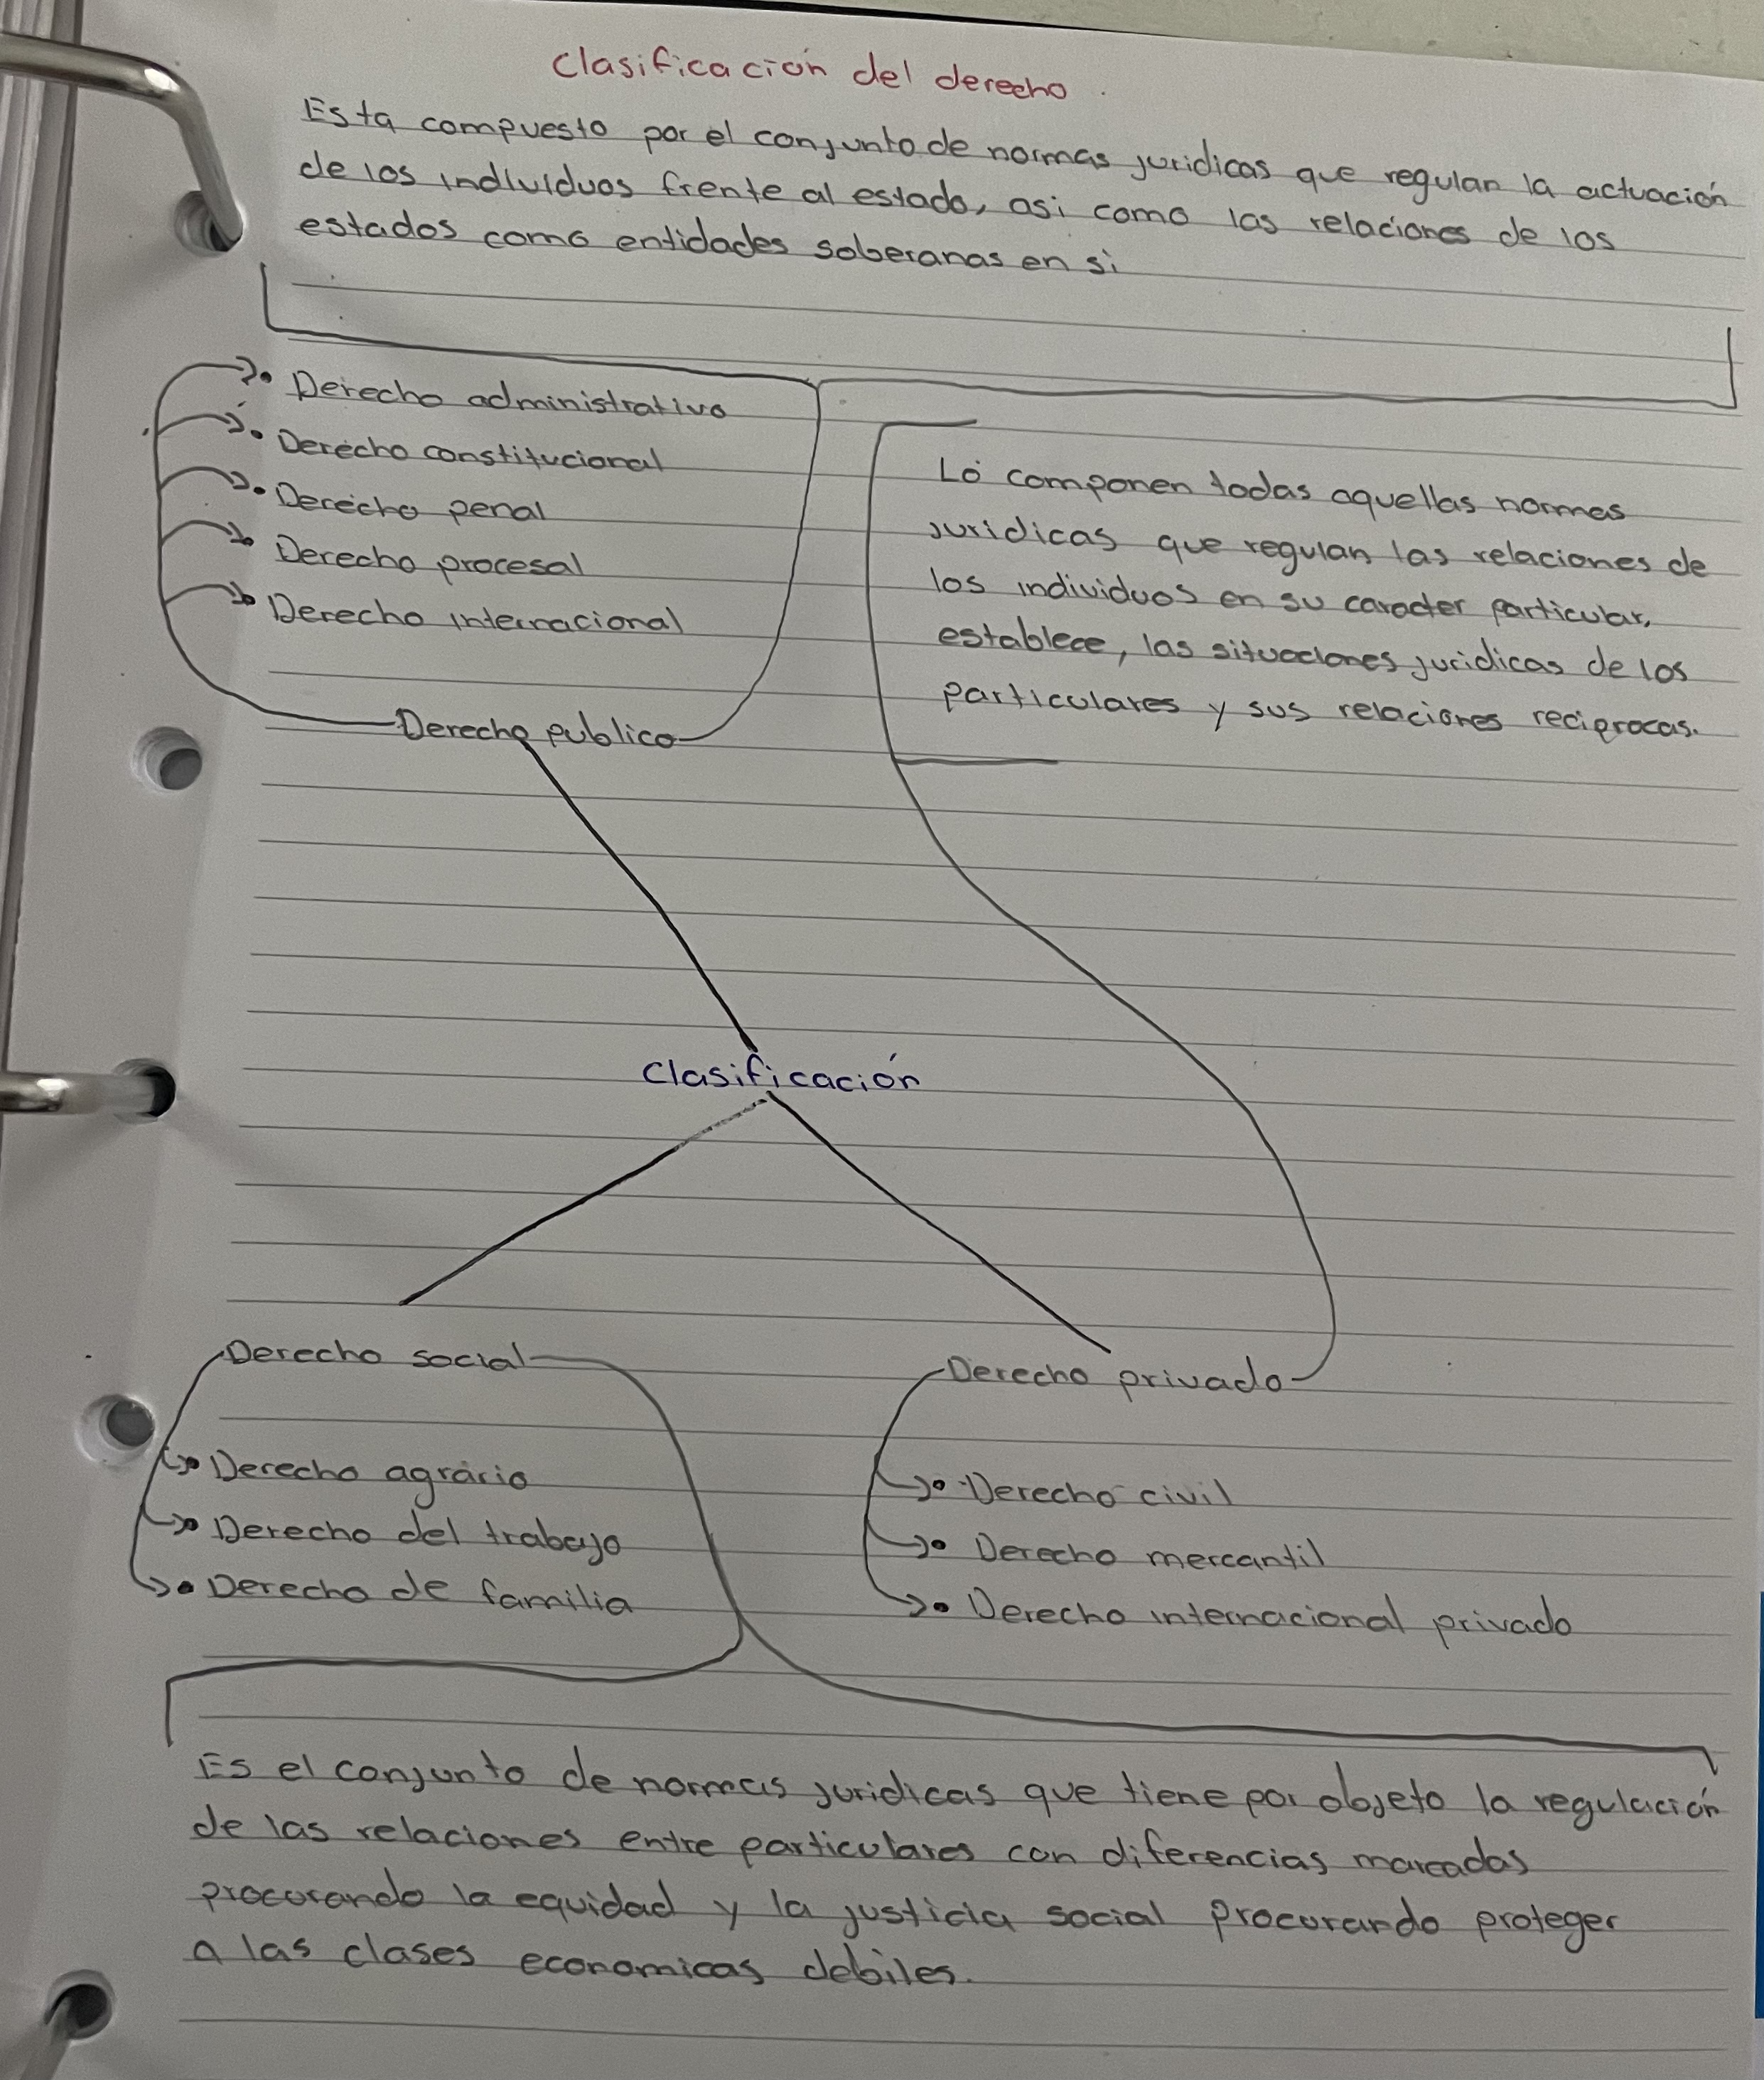 Clasificación del derecho.
Esta compuesto por el conjunto de normas juridicas que regulan la actuación
de los individuos frente al estado, asi como las relaciones de los
estados como entidades soberanas en si
Derecho administrativo
Derecho constitucional
Derecho penal
Derecho procesal
Derecho internacional
Derecho publico
Lo componen todas aquellas normas
juridicas que regulan las relaciones de
los individuos en su caracter particular,
establece, las situaciones juridicas de los
particulares y sus relaciones reciprocas.
Clasificación
Derecho social
Derecho agrario
Derecho del trabajo
Derecho de familia
Derecho privado
Derecho civil
Derecho mercantil
Derecho internacional privado
Es el conjunto de normas juridicas que tiene por objeto la regulación
de las relaciones entre particulares con diferencias marcadas
procurando la equidad y la justicia social procurando proteger
a las clases economicas debiles.